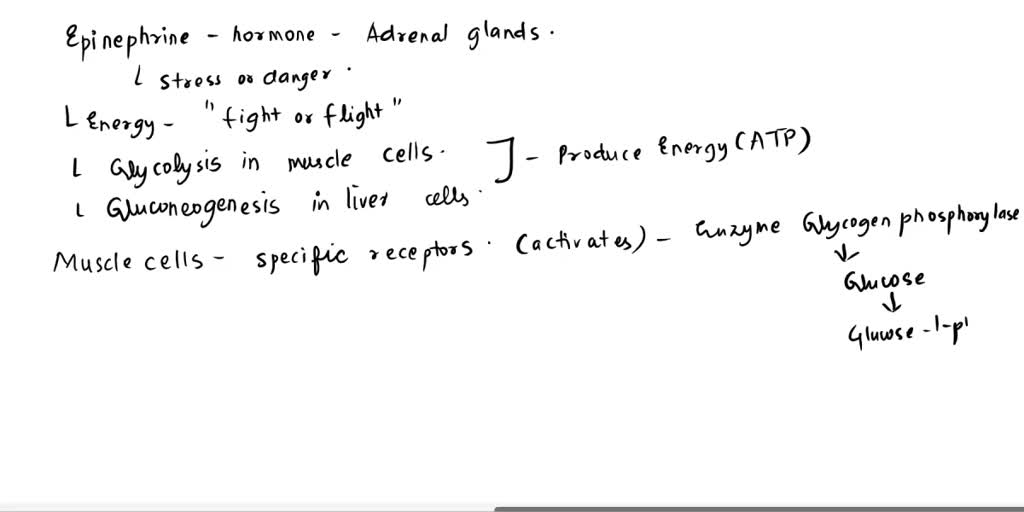 Epinephrine - hormone - Adrenal glands.
Stress or danger.
Energy - "fight or flight"
Glycolysis in muscle cells.
Gluconeogenesis in liver cells.
] - Produce Energy (ATP)
Muscle cells - specific receptors. (activates) - Enzyme Glycogen phosphorylase
↓
Glucose
↓
Glucose-1-p